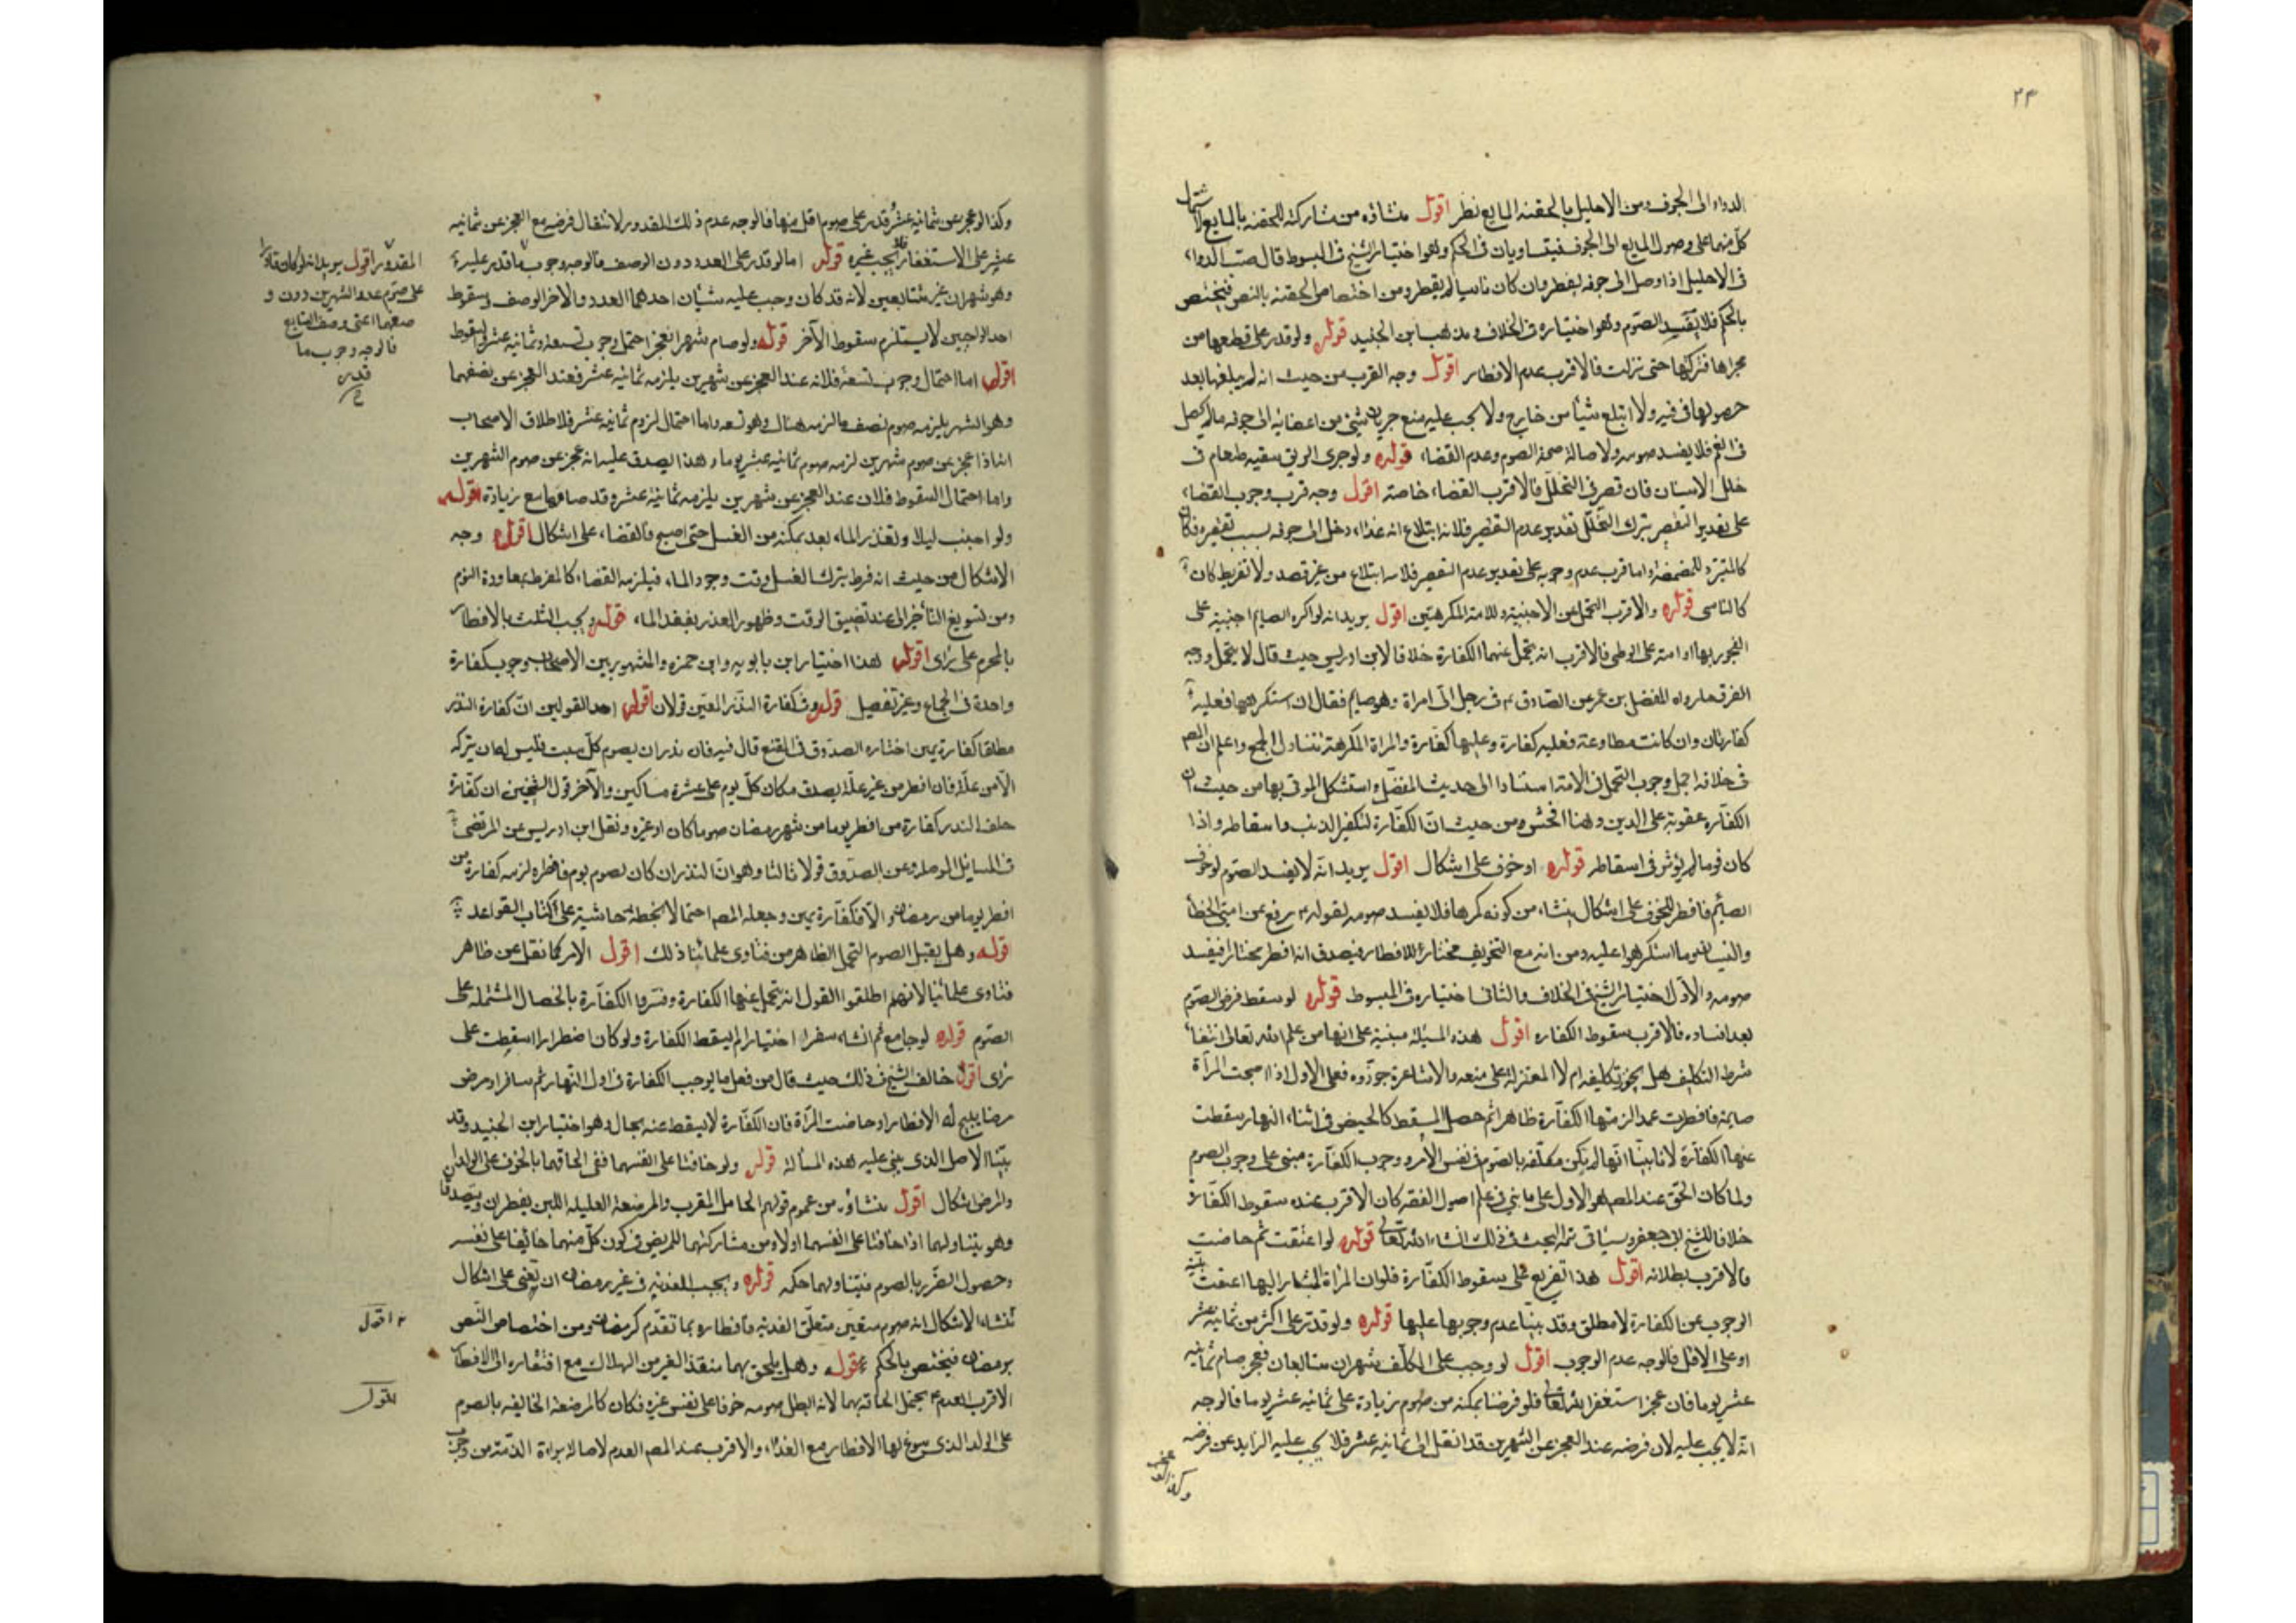 ٢٣
الدواء الى الجوف ومن الاحليل بالحقنه المايع نظر اقول منشاؤه من مشاركته للحقنه بالمايع لاشتمال
كل منهما على وصول المايع الى الجوف فيتساويان فى الحكم وهو اختيار الشيخ فى المبسوط قال صب الدواء
فى الاحليل اذا وصل الى جوفه يفطر وان كان ناسيا لم يفطر ومن اختصاص الحقنه بالنص فيختص
بالحكم فلا يفسد الصوم وهو اختياره فى الخلاف ومذهب ابن الجنيد قوله ولو قدر على قطعها من
مجراها فتركها حتى نزلت فالاقرب عدم الافطار اقول وجه القرب من حيث انه لم يبلغها بعد
حصولها فى فيه ولا ابتلع شيأ من خارج ولا يجب عليه منع جريان شئ من اعضائه الى جوفه مالم يحصل
فى الفم فلا يفسد صومه ولاصالة صحة الصوم وعدم القضاء قوله ولو جرى الريق ببقيه طعام فى
خلل الاسنان فان قصر فى التخلل فالاقرب القضاء خاصة اقول وجه قرب وجوب القضاء
على تقدير التقصير بترك التخلل تقدير عدم التقصير فلانه ابتلاع انه غذاء دخل الى جوفه بسبب تقصيره فكان
كالمتبرد للمضمضة واما قرب عدم وجوبه على تقدير عدم التقصير فلانه ابتلاع من غير قصد ولا تفريط كان
كالناسى قوله والاقرب التحمل عن الاجنبية وللامة المكرهتين اقول يريد انه لو اكره الصايم اجنبية على
الفجور بها او امته على الوطى فالاقرب انه يتحمل عنهما الكفارة خلافا لابن ادريس حيث قال لا يتحمل ووجه
القرب ما رواه المفضل بن عمر عن الصادق ع فى رجل اتى امراة وهو صايم فقال ان استكرهها فعليه
كفارتان وان كانت مطاوعة فعليه كفارة وعليها كفارة والمراة المكرهة تتناول الجميع واعلم ان المصـ
فى خلافه اجمل وجوب التحمل فى الامة استنادا الى حديث المفضل واستشكل المزنى بها من حيث ان
الكفاره عقوبة على الذنب وهنا افحش ومن حيث ان الكفارة لتكفير الذنب واسقاطه واذا
كان قويا لم يؤثر فى اسقاطه قوله او خوف على اشكال اقول يريد انه لا يفسد الصوم لو خوف
الصايم فافطر للخوف على اشكال ينشاء من كونه مكرها فلا يفسد صومه لقوله ع رفع عن امتى الخطأ
والنسيان وما استكرهوا عليه ومن انه مع التخويف مختار للافطار فيصدق انه افطر مختارا فيفسد
صومه والاول اختيار الشيخ فى الخلاف والثانى اختياره فى المبسوط قوله لو سقط فرض الصوم
بعد افساده فالاقرب سقوط الكفاره اقول هذه المسئلة مبنية على انها من علم الله تعالى انتفاء
شرط التكليف هل يجوز تكليفه ام لا المعتزلة على منعه والاشاعرة جوزوه فعلى الاول اذا اصبحت المرأة
صايمة فافطرت عمدا لزمتها الكفارة ظاهرا ثم حصل المسقط كالحيض فى اثناء النهار سقطت
عنها الكفارة لانا بينا انها لم يكن مكلفة بالصوم فى نفس الامر ووجوب الكفارة مبنى على وجوب الصوم
ولما كان الحق عند المص هو الاول على ما بنى فى علم اصول الفقه كان الاقرب عنده سقوط الكفارة
خلافا للشيخ ابى جعفر وسياتى تتمة البحث فى ذلك انشاء الله تعالى قوله لو اعتقت ثم حاضت
فالاقرب بطلانه اقول هذا تفريع على سقوط الكفارة فلو ان المرأة المشار اليها اعتقت بنية
الوجوب عن الكفارة لا مطلق وقد بينا عدم وجوبها عليها قوله ولو قدر على اكثر من ثمانية عشر
او على الاقل فالوجه عدم الوجوب اقول لو وجب على المكلف شهران متتابعان فعجز صام ثمانيه
عشر يوما فان عجز استغفر الله تعالى فلو فرضنا تمكنه من صوم زيادة على ثمانيه عشر يوما فالوجه
انه لا يجب عليه لان فرضه عند العجز عن الشهرين قد انتقل الى ثمانية عشر فلا يجب عليه الزايد عن فرضه
وكذا لو عجز
وكذا لو عجز عن ثمانية عشر وقدر على صوم اقل منها فالوجه عدم ذلك المقدور لانتقال فرضه مع العجز عن ثمانيه
عشر على الاستغفار فلا يجب غيره قوله اما لو قدر على العدد دون الوصف فالوجه وجوب ما قدر عليه
وهو شهران غير متتابعين لانه قد كان وجب عليه شيئان احدهما العدد والاخر الوصف وسقوط
احد الواجبين لا يستلزم سقوط الآخر قوله ولو صام شهرا فعجز احتمل وجوب تسعة وثمانية عشر والسقوط
اقول اما احتمال وجوب تسعة فلانه عند العجز عن شهرين يلزمه ثمانية عشر فعند العجز عن نصفهما
وهو الشهر يلزمه صوم نصف ما لزمه هناك وهو تسعه واما احتمال لزوم ثمانية عشر فلاطلاق الاصحاب
انه اذا عجز عن صوم شهرين لزمه صوم ثمانية عشر يوما وهذا يصدق عليه انه عجز عن صوم الشهرين
واما احتمال السقوط فلان عند العجز عن شهرين يلزمه ثمانية عشر وقد صامها مع زيادة قوله
ولو اجنب ليلا وتعذر الماء بعد تمكنه من الغسل حتى اصبح فالقضاء على اشكال اقول وجه
الاشكال من حيث انه فرط بترك الغسل وقت وجود الماء فيلزمه القضاء كالمفرط بمعاودة النوم
ومن تسويغ التأخير الى عند تضييق الوقت وظهور العذر بفقد الماء قوله ويجب الثلث بالافطار
بالمحرم على راى اقول هذا اختيار ابن بابويه وابن حمزه والمشهور بين الاصحاب وجوب كفارة
واحدة فى الجماع وغيره تفصيل قوله وفى كفارة النذر المعين قولان اقول احد القولين ان كفارة النذر
مطلقا كفارة يمين اختاره الصدوق فى المقنع قال فيه فان نذر ان يصوم كل سبت فليس له ان يتركه
الا من علة فان افطر من غير علة يصدق مكان كل يوم على عشرة مساكين والآخر قول الشيخين ان كفارة
خلف النذر كفارة من افطر يوما من شهر رمضان صوما كان او غيره ونقل ابن ادريس عن المرتضى
فى المسايل الموصلية وعن الصدوق قولا ثالثا وهو ان النذر ان كان لصوم يوم فافطره لزمه كفارة من
افطر يوما من رمضان والا فكفارة يمين وجعله المص احتمالا بخطه حاشية على كتاب القواعد
قوله وهل يقبل الصوم التحمل الظاهر من فتاوى علمائنا ذلك اقول الامر كما نقل عن ظاهر
فتاوى علمائنا لانهم اطلقوا القول انه يتحمل عنها الكفارة وفسروا الكفارة بالخصال المشتملة على
الصوم قوله لو جامع ثم انشاء سفرا اختيارا لم يسقط الكفارة ولو كان اضطرارا اسقطت على
راى اقول خالف الشيخ فى ذلك حيث قال من فعل ما يوجب الكفارة فى اول النهار ثم سافر او مرض
مرضا يبيح له الافطار او حاضت المرأة فان الكفارة لا يسقط عنه بحال وهو اختيار ابن الجنيد وقد
بينا الاصل الذى بنى عليه هذه المسألة قوله ولو خافتا على انفسهما ففى الحاقهما بالخوف على الولد
والمرض اشكال اقول منشاؤه من عموم قولهم الحامل المقرب والمرضعة القليلة اللبن يفطران ويتصدقان
وهو يتناولهما اذا خافتا على انفسهما اولا ومن مشاركتهما للمريض فى كون كل منهما خائفا على نفسه
وحصول الضرر بالصوم فيتناولهما حكمه قوله ويجب الفدية فى غير رمضان ان تعين على اشكال
منشاء الاشكال انه صوم متعين متعلق الفدية فافطاره بما تقدم كرمضان ومن اختصاص النص
برمضان فيختص بالحكم قوله وهل يلحق بهما منقذ الغير من الهلاك مع افتقاره الى الافطار
الاقرب العدم يحتمل الحاقه بهما لانه ابطل صومه خوفا على نفس غيره فكان كالمرضعة الخائفة بالصوم
على الولد الذى يسوغ لها الافطار مع الفداء والاقرب عند المص العدم لاصالة براءة الذمة من وجوب
المقدور اقول يريد انه لو كان قادرا
على صوم عدد الشهرين دون و
صفهما اعنى وصف التتابع
فالوجه وجوب ما
قدر
اقول
اقول